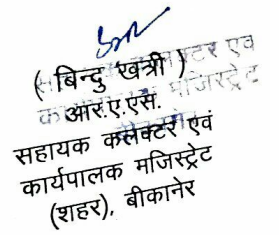 ( बिन्दु खत्री )
आर.ए.एस.
सहायक कलेक्टर एवं
कार्यपालक मजिस्ट्रेट
(शहर), बीकानेर